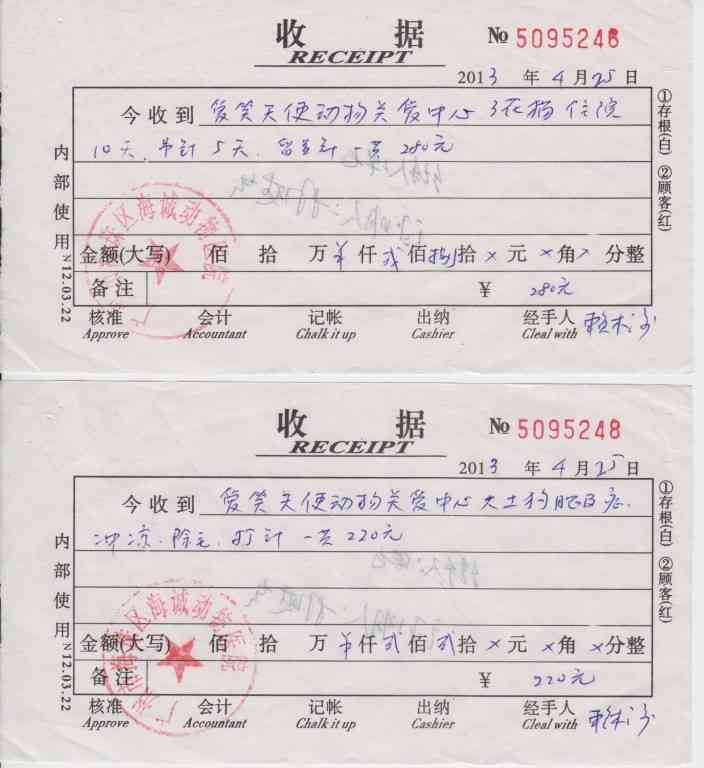 收 据
RECEIPT
No 5095248
2013 年 4 月 25 日
今收到 爱笑天使动物关爱中心 3花猫 住院
10天、吊针 5天、留置针 一共 280元
金额(大写) 佰 拾 万 仟 贰 佰 捌 拾 × 元 × 角 × 分整
备注 ¥ 280元
核准 会计 记帐 出纳 经手人
Approve Accountant Chalk it up Cashier Cleal with
内部使用 N12.03.22
①存根(白) ②顾客(红)
海诚动物医院
收 据
RECEIPT
No 5095248
2013 年 4 月 25 日
今收到 爱笑天使动物关爱中心 大土狗 皮 症.
冲凉、除毛、打针 一共 220元
金额(大写) 佰 拾 万 仟 贰 佰 贰 拾 × 元 × 角 × 分整
备注 ¥ 220元
核准 会计 记帐 出纳 经手人
Approve Accountant Chalk it up Cashier Cleal with
内部使用 N12.03.22
①存根(白) ②顾客(红)
广州市海珠区海诚动物医院